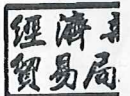 經濟
貿易局